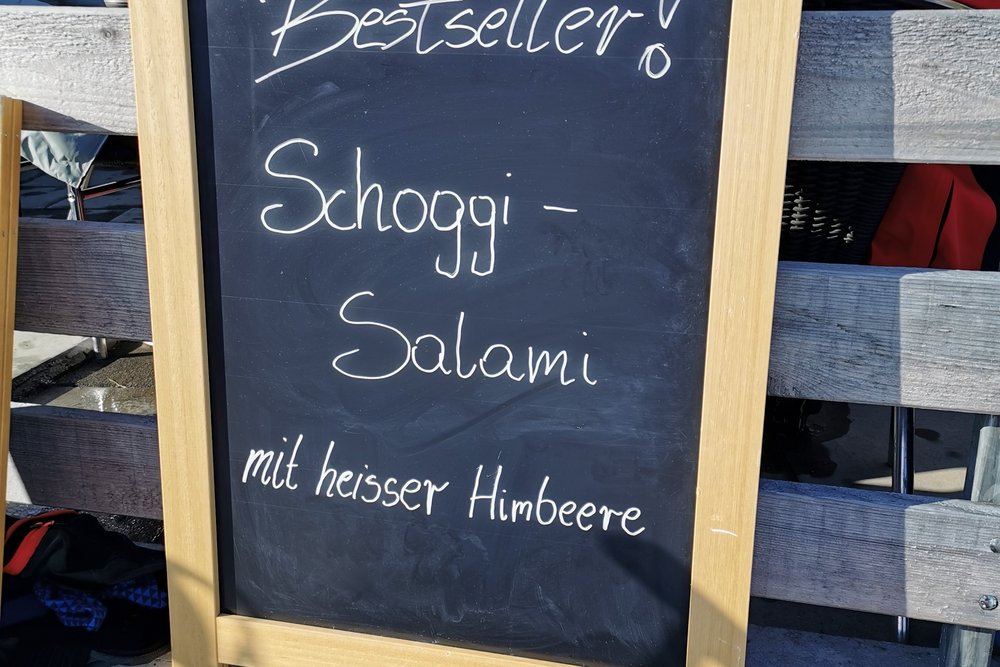 Bestseller!
Schoggi -
Salami
mit heisser Himbeere